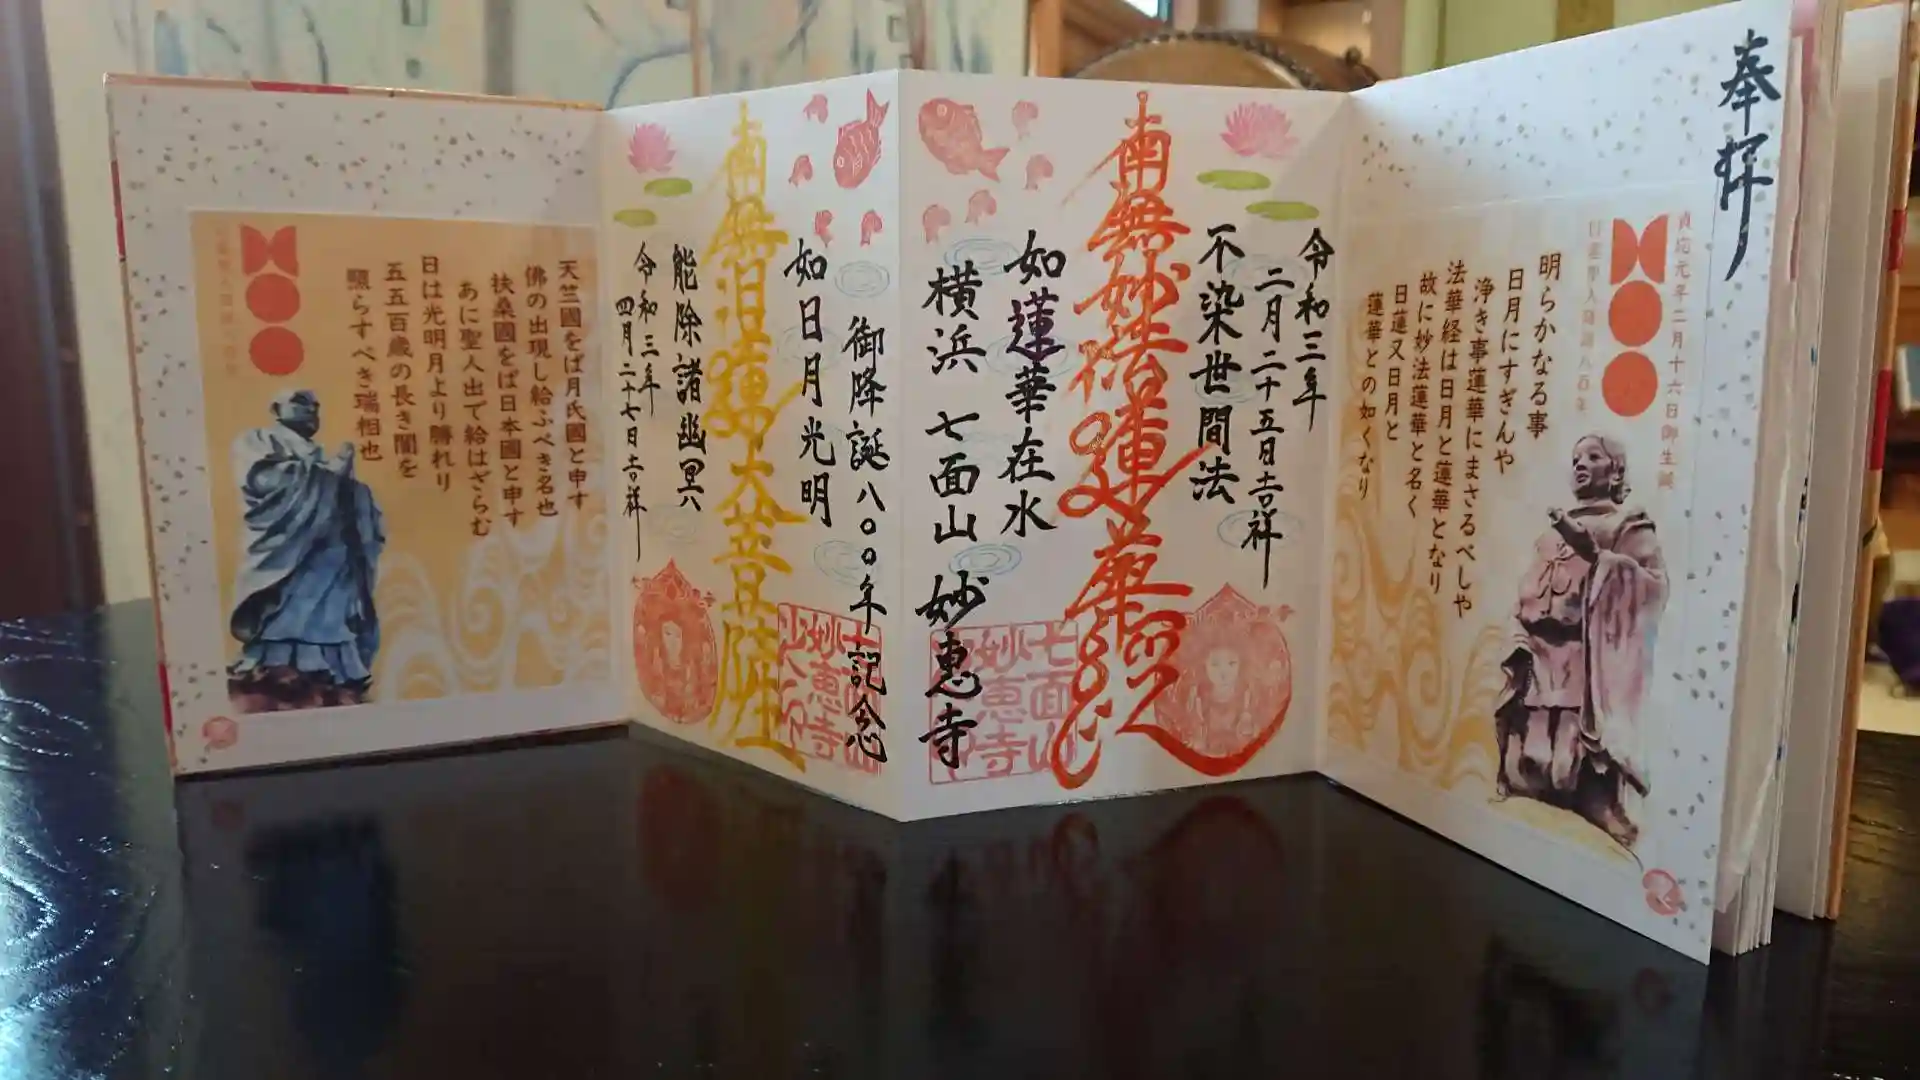 奉拝
貞応元年二月十六日御生誕
日蓮聖人降誕八百年
明らかなる事
日月にすぎんや
浄き事蓮華にまさるべしや
法華経は日月と蓮華となり
故に妙法蓮華と名く
日蓮又日月と
蓮華との如くなり
令和三年
二月二十五日吉祥
不染世間法
南無妙法蓮華経
如蓮華在水
横浜 七面山 妙恵寺
七面山
妙恵寺
御降誕八〇〇年 記念
如日月光明
南無日蓮大菩薩
能除諸幽冥
令和三年
四月二十七日吉祥
七面山
妙恵寺
天竺國をば月氏國と申す
佛の出現し給ふべき名也
扶桑國をば日本國と申す
あに聖人出で給はざらむ
日は光明月より勝れり
五五百歳の長き闇を
照らすべき瑞相也